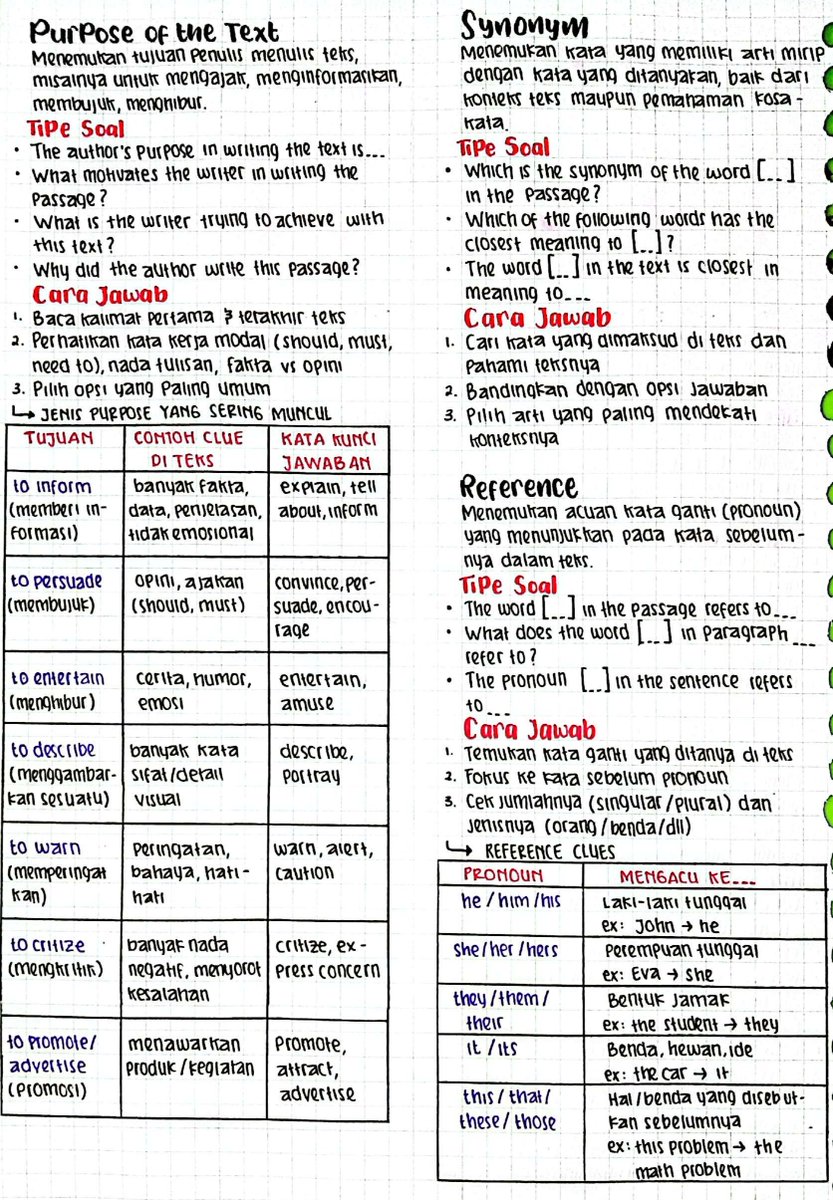 Purpose of the Text
Menemukan tujuan penulis menulis teks,
misalnya untuk mengajak, menginformasikan,
membujuk, menghibur.
Tipe Soal
• The author's purpose in writing the text is...
• What motivates the writer in writing the
passage?
• What is the writer trying to achieve with
this text?
• Why did the author write this passage?
Cara Jawab
1. Baca kalimat pertama & terakhir teks
2. Perhatikan kata kerja modal (should, must,
need to), nada tulisan, fakta vs opini
3. Pilih opsi yang paling umum
↳ JENIS PURPOSE YANG SERING MUNCUL
TUJUAN
CONTOH CLUE
DI TEKS
KATA KUNCI
JAWABAN
to inform
(memberi in-
formasi)
banyak fakta,
data, penjelasan,
tidak emosional
explain, tell
about, inform
to persuade
(membujuk)
opini, ajakan
(should, must)
convince, per-
suade, encou-
rage
to entertain
(menghibur)
cerita, humor,
emosi
entertain,
amuse
to describe
(menggambar-
kan sesuatu)
banyak kata
sifat/detail
visual
describe,
portray
to warn
(memperingat
kan)
peringatan,
bahaya, hati-
hati
warn, alert,
caution
to critize
(mengkritik)
banyak nada
negatif, menyorot
kesalahan
critize, ex-
press concern
to promote/
advertise
(promosi)
menawarkan
produk/kegiatan
promote,
attract,
advertise
Synonym
Menemukan kata yang memiliki arti mirip
dengan kata yang ditanyakan, baik dari
konteks teks maupun pemahaman kosa-
kata.
Tipe Soal
• Which is the synonym of the word [...]
in the passage?
• Which of the following words has the
closest meaning to [...]?
• The word [...] in the text is closest in
meaning to...
Cara Jawab
1. Cari kata yang dimaksud di teks dan
pahami teksnya
2. Bandingkan dengan opsi jawaban
3. Pilih arti yang paling mendekati
konteksnya
Reference
Menemukan acuan kata ganti (pronoun)
yang menunjukkan pada kata sebelum-
nya dalam teks.
Tipe Soal
• The word [...] in the passage refers to...
• What does the word [...] in paragraph ...
refer to?
• The pronoun [...] in the sentence refers
to...
Cara Jawab
1. Temukan kata ganti yang ditanya di teks
2. Fokus ke kata sebelum pronoun
3. Cek jumlahnya (singular/plural) dan
jenisnya (orang/benda/dll)
↳ REFERENCE CLUES
PRONOUN
MENGACU KE...
he/him/his
Laki-laki tunggal
ex: John → he
she/her/hers
Perempuan tunggal
ex: Eva → she
they/them/
their
Bentuk jamak
ex: the student → they
it/its
Benda, hewan, ide
ex: the car → it
this/that/
these/those
Hal/benda yang disebut-
kan sebelumnya
ex: this problem → the
math problem